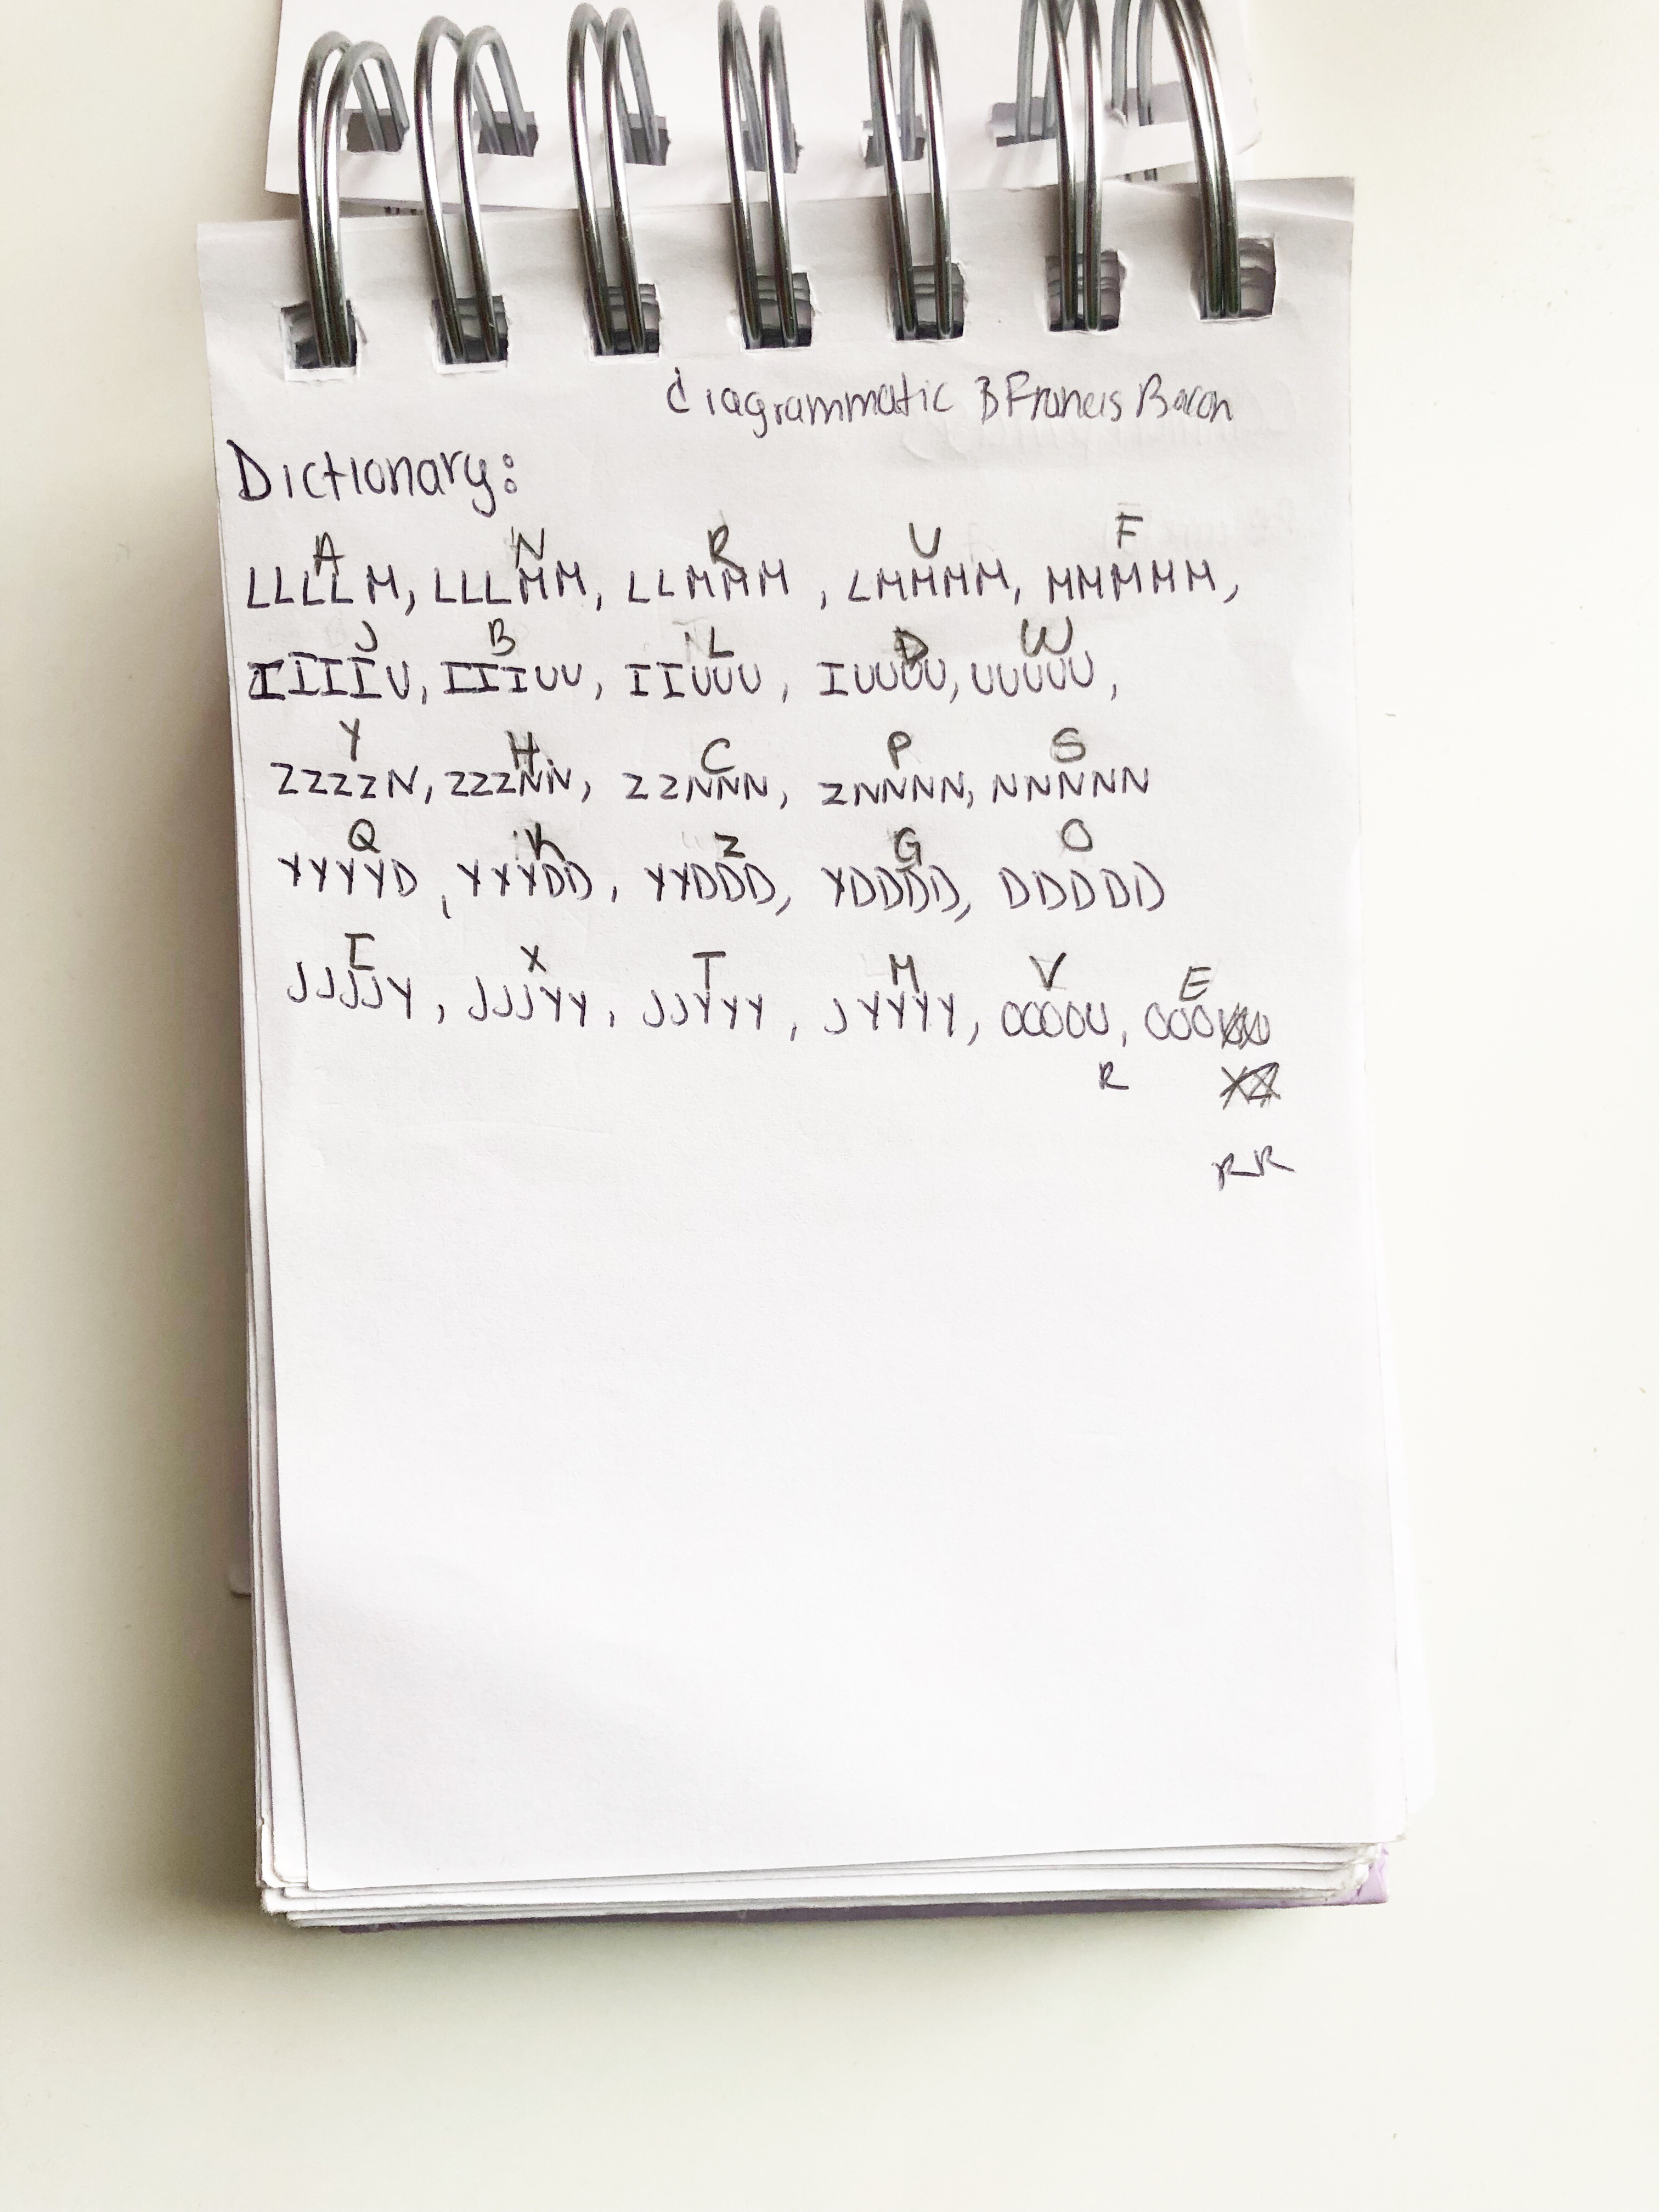 diagrammatic B Francis Bacon
Dictionary:
A N R U F
LLLLM, LLLMM, LLMMM, LMMMM, MMMMM,
J B L D W
IIIIU, IIIUU, IIUUU, IUUUU, UUUUU,
Y H C P S
ZZZZN, ZZZNN, ZZNNN, ZNNNN, NNNNN
Q K Z G O
YYYYD, YYYDD, YYDDD, YDDDD, DDDDD
I X T M V E
JJJJY, JJJYY, JJYYY, JYYYY, OOOOU, OOO
R
RR